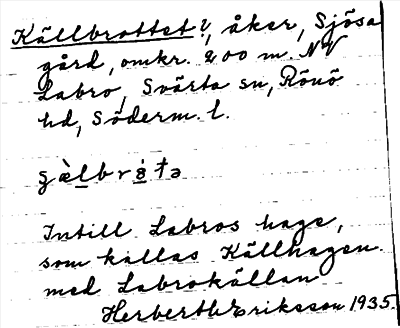 Källbrottet?, åker, Sjösa
gård, omkr. 200 m. NV
Labro, Svärta sn, Rönö
hd, Söderm. l.
Intill Labros hage,
som kallas Källhagen
med Labrokällan
Herbert Eriksson 1935.